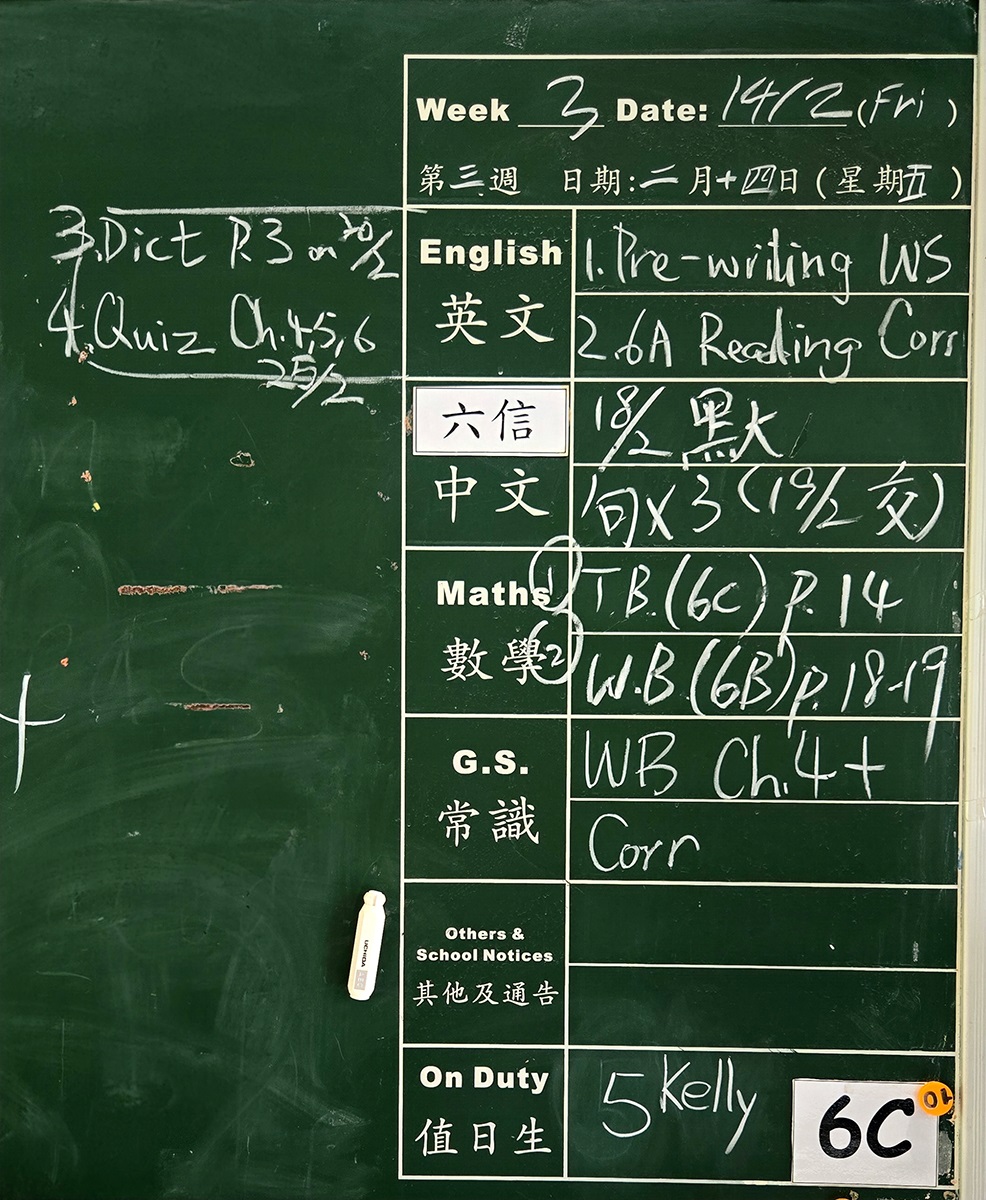 Week 3 Date: 14/2 (Fri)
第三週 日期:二月十四日(星期五)
English
英文
1. Pre-writing WS
2. 6A Reading Corr
3. Dict P.3 on 20/2
4. Quiz Ch.4,5,6
25/2
六信
中文
18/2 默大
句x3 (19/2 交)
Maths
數學
① T.B. (6C) p. 14
② W.B. (6B) p. 18-19
G.S.
常識
WB Ch.4 +
Corr
Others &
School Notices
其他及通告
On Duty
值日生
5 Kelly
6C
UCHIDA